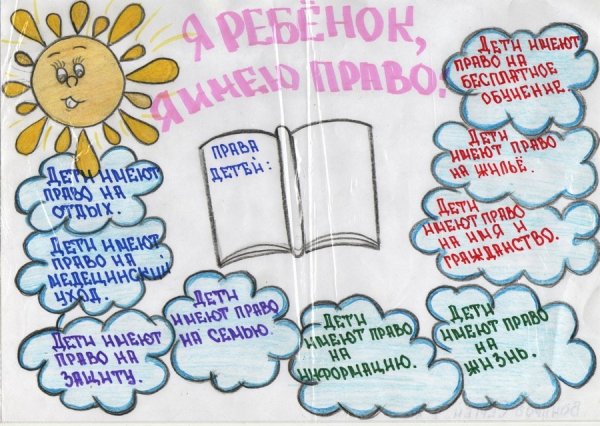 Я РЕБЁНОК,
Я ИМЕЮ ПРАВО!
ПРАВА
ДЕТЕЙ:
ДЕТИ ИМЕЮТ
ПРАВО НА
ОТДЫХ.
ДЕТИ ИМЕЮТ
ПРАВО НА
МЕДЕЦИНСКИЙ
УХОД.
ДЕТИ ИМЕЮТ
ПРАВО НА
ЗАЩИТУ.
ДЕТИ
ИМЕЮТ ПРАВО
НА СЕМЬЮ.
ДЕТИ
ИМЕЮТ ПРАВО
НА
ИНФОРМАЦИЮ.
ДЕТИ
ИМЕЮТ ПРАВО
НА
ЖИЗНЬ.
ДЕТИ ИМЕЮТ
ПРАВО НА
БЕСПЛАТНОЕ
ОБУЧЕНИЕ.
ДЕТИ
ИМЕЮТ ПРАВО
НА ЖИЛЬЁ.
ДЕТИ
ИМЕЮТ ПРАВО
НА ИМЯ И
ГРАЖДАНСТВО.